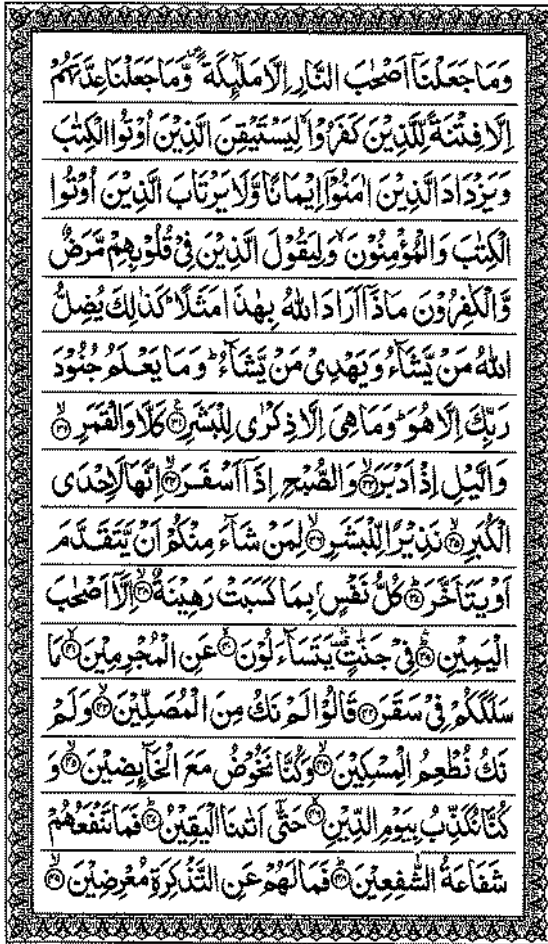 وَمَا جَعَلْنَاۤ اَصْحٰبَ النَّارِ اِلَّا مَلٰٓئِكَةً ۪ وَّمَا جَعَلْنَا عِدَّتَهُمْ
اِلَّا فِتْنَةً لِّلَّذِيْنَ كَفَرُوْا ۙ لِيَسْتَيْقِنَ الَّذِيْنَ اُوْتُوا الْكِتٰبَ
وَيَزْدَادَ الَّذِيْنَ اٰمَنُوْۤا اِيْمَانًا وَّلَا يَرْتَابَ الَّذِيْنَ اُوْتُوا
الْكِتٰبَ وَالْمُؤْمِنُوْنَ ۙ وَلِيَقُوْلَ الَّذِيْنَ فِيْ قُلُوْبِهِمْ مَّرَضٌ
وَّالْكٰفِرُوْنَ مَاذَاۤ اَرَادَ اللّٰهُ بِهٰذَا مَثَلًا ؕ كَذٰلِكَ يُضِلُّ
اللّٰهُ مَنْ يَّشَآءُ وَيَهْدِيْ مَنْ يَّشَآءُ ؕ وَمَا يَعْلَمُ جُنُوْدَ
رَبِّكَ اِلَّا هُوَ ؕ وَمَا هِيَ اِلَّا ذِكْرٰى لِلْبَشَرِ ﴿۳۱﴾ كَلَّا وَالْقَمَرِ ﴿۳۲﴾ۙ
وَالَّيْلِ اِذْ اَدْبَرَ ﴿۳۳﴾ۙ وَالصُّبْحِ اِذَاۤ اَسْفَرَ ﴿۳۴﴾ۙ اِنَّهَا لَاِحْدَى
الْكُبَرِ ﴿۳۵﴾ۙ نَذِيْرًا لِّلْبَشَرِ ﴿۳۶﴾ۙ لِمَنْ شَآءَ مِنْكُمْ اَنْ يَّتَقَدَّمَ
اَوْ يَتَاَخَّرَ ﴿۳۷﴾ؕ كُلُّ نَفْسٍۭ بِمَا كَسَبَتْ رَهِيْنَةٌ ﴿۳۸﴾ۙ اِلَّاۤ اَصْحٰبَ
الْيَمِيْنِ ﴿۳۹﴾ؕۛ فِيْ جَنّٰتٍ ۛ۫ يَتَسَآءَلُوْنَ ﴿۴۰﴾ۙ عَنِ الْمُجْرِمِيْنَ ﴿۴۱﴾ۙ مَا
سَلَكَكُمْ فِيْ سَقَرَ ﴿۴۲﴾ قَالُوْا لَمْ نَكُ مِنَ الْمُصَلِّيْنَ ﴿۴۳﴾ۙ وَلَمْ
نَكُ نُطْعِمُ الْمِسْكِيْنَ ﴿۴۴﴾ۙ وَكُنَّا نَخُوْضُ مَعَ الْخَآئِضِيْنَ ﴿۴۵﴾ۙ وَ
كُنَّا نُكَذِّبُ بِيَوْمِ الدِّيْنِ ﴿۴۶﴾ۙ حَتّٰۤى اَتٰىنَا الْيَقِيْنُ ﴿۴۷﴾ؕ فَمَا تَنْفَعُهُمْ
شَفَاعَةُ الشّٰفِعِيْنَ ﴿۴۸﴾ؕ فَمَا لَهُمْ عَنِ التَّذْكِرَةِ مُعْرِضِيْنَ ﴿۴۹﴾ۙ